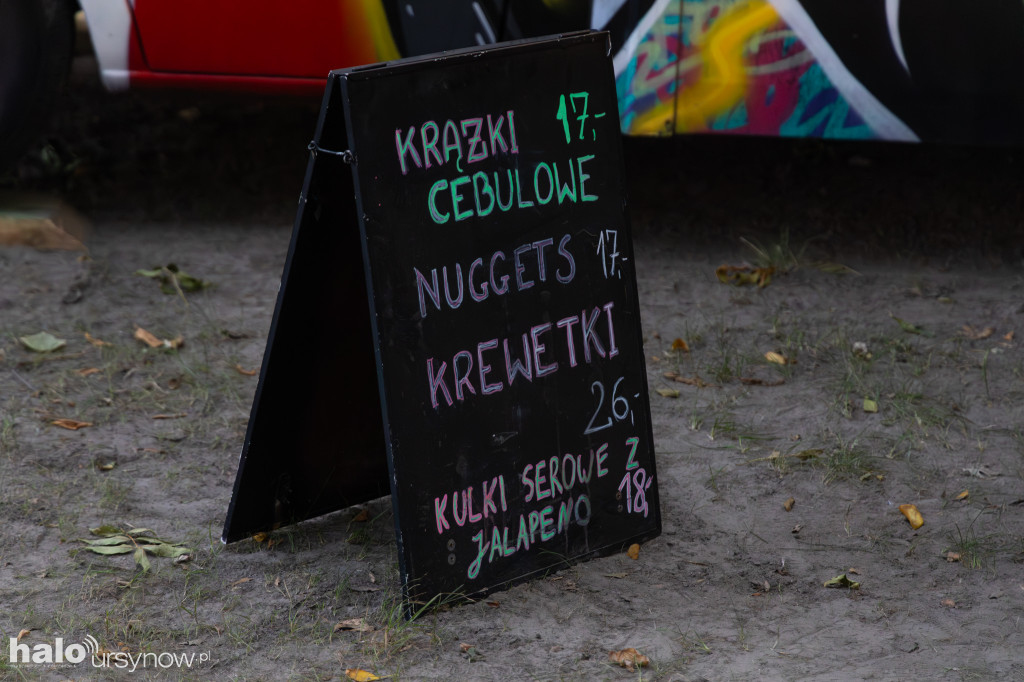 KRĄZKI 17,-
CEBULOWE
NUGGETS 17,-
KREWETKI
26,-
KULKI SEROWE Z
JALAPENO 18,-
halo ursynow.pl